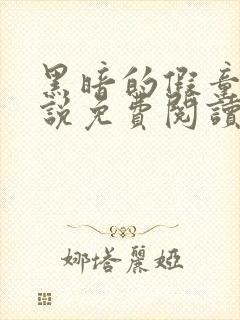 黑暗的假童
說免費閱讀
娜塔麗婭